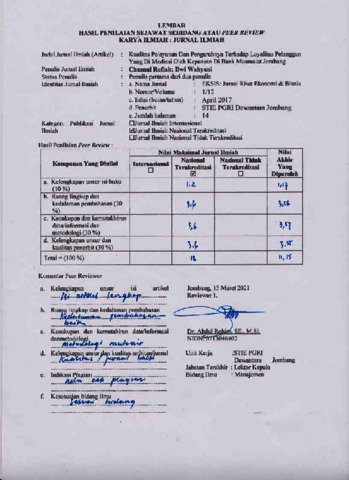 LEMBAR
HASIL PENILAIAN SEJAWAT SEBIDANG ATAU PEER REVIEW
KARYA ILMIAH : JURNAL ILMIAH
Judul Jurnal Ilmiah (Artikel) : Kualitas Pelayanan Dan Pengaruhnya Terhadap Loyalitas Pelanggan
Yang Di Mediasi Oleh Kepuasan Di Bank Muamalat Jombang
Penulis Jurnal Ilmiah : Chusnul Rofiah; Dwi Wahyuni
Status Penulis : Penulis pertama dari dua penulis
Identitas Jurnal Ilmiah : a. Nama Jurnal : EKSIS: Jurnal Riset Ekonomi & Bisnis
b. Nomor/Volume : 1/12
c. Edisi (bulan/tahun) : April 2017
d. Penerbit : STIE PGRI Dewantara Jombang
e. Jumlah halaman : 14
Kategori Publikasi Jurnal : Jurnal Ilmiah Internasional
Ilmiah Jurnal Ilmiah Nasional Terakreditasi
Jurnal Ilmiah Nasional Tidak Terakreditasi
Hasil Penilaian Peer Review :
Komponen Yang Dinilai
Nilai Maksimal Jurnal Ilmiah
Internasional
Nasional Terakreditasi
Nasional Tidak Terakreditasi
Nilai Akhir Yang Diperoleh
a. Kelengkapan unsur isi buku (10 %) 1.2
b. Ruang lingkup dan kedalaman pembahasan (30 %) 3,6
c. Kecukupan dan kemutakhiran data/informasi dan metodologi (30 %) 3,6
d. Kelengkapan unsur dan kualitas penerbit (30 %) 3.6
Total = (100 %) 12 11,15
Komentar Peer Reviewer
a. Kelengkapan unsur isi artikel
Isi artikel lengkap
b. Ruang lingkup dan kedalaman pembahasan
Kedalaman pembahasan baik
c. Kecukupan dan kemutakhiran data/informasi dan metodologi
d. Kelengkapan unsur dan kualitas
e. Indikasi Plagiasi
f. Kesesuaian bidang ilmu
Sesuai bidang
Jombang, 15 Maret 2021
Reviewer 1,
Dr. Abdul Rohim, SE., M.Si.
Unit Kerja : STIE PGRI
Dewantara Jombang
Jabatan Terakhir : Lektor Kepala
Bidang Ilmu : Manajemen